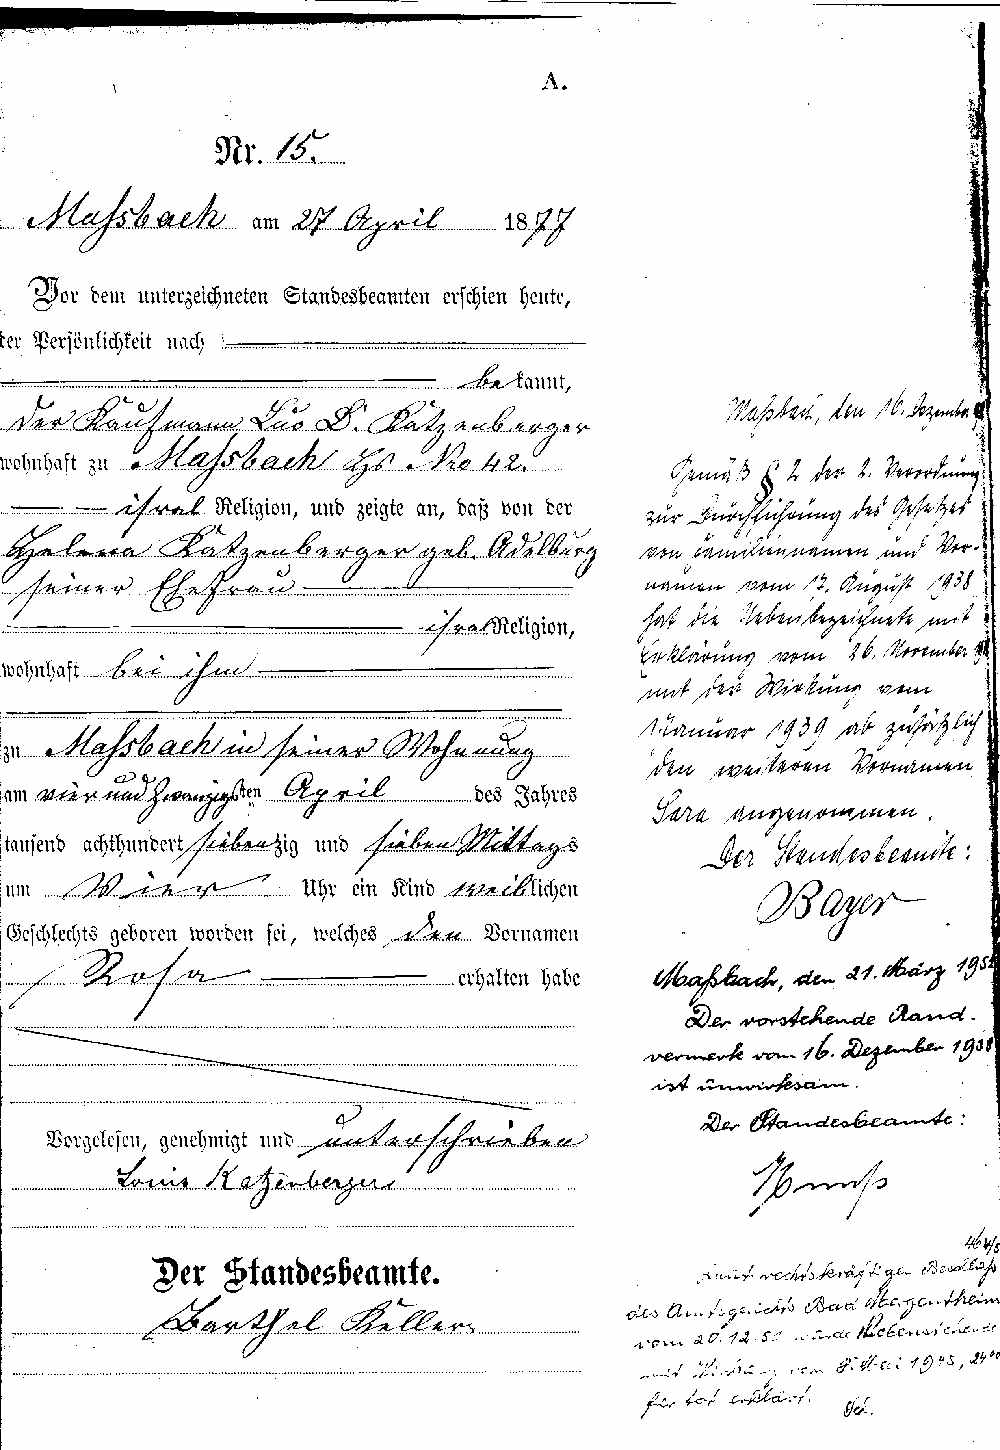 A.
Nr. 15.
Massbach am 27 April 1877
Vor dem unterzeichneten Standesbeamten erschien heute,
der Persönlichkeit nach
bekannt,
der Kaufmann D. Katzenberger
wohnhaft zu Massbach Hs. No 42.
isral Religion, und zeigte an, daß von der
Helena Katzenberger geb. Adelburg
seiner Ehefrau
isral Religion,
wohnhaft bei ihm
zu Massbach in seiner Wohnung
am vier und zwanzigsten April des Jahres
tausend achthundert siebenzig und sieben Mittags
um Vier Uhr ein Kind weiblichen
Geschlechts geboren worden sei, welches den Vornamen
Rosa erhalten habe
Vorgelesen, genehmigt und unterschrieben
Louis Katzenberger
Der Standesbeamte.
Barthel Keller
Maßbach, den 16. Dezember
Gemäß § 2 der 2. Verordnung
zur Durchführung des Gesetzes
von Familiennamen und Vor-
namen vom 17. August 1938
hat die Nebenbezeichnete mit
Erklärung vom 26. November
mit der Wirkung vom
1. Januar 1939 ab zusätzlich
den weiteren Vornamen
Sara angenommen.
Der Standesbeamte:
Bayer
Maßbach, den 21. März
Der vorstehende Rand-
vermerk vom 16. Dezember 1938
ist unwirksam.
Der Standesbeamte:
Laut rechtskräftigen Beschluß
des Amtsgerichts Bad Mergentheim
vom 20.12.51 wurde Nebenstehende
mit Wirkung vom 8. Mai 1945, 24 00
für tot erklärt.